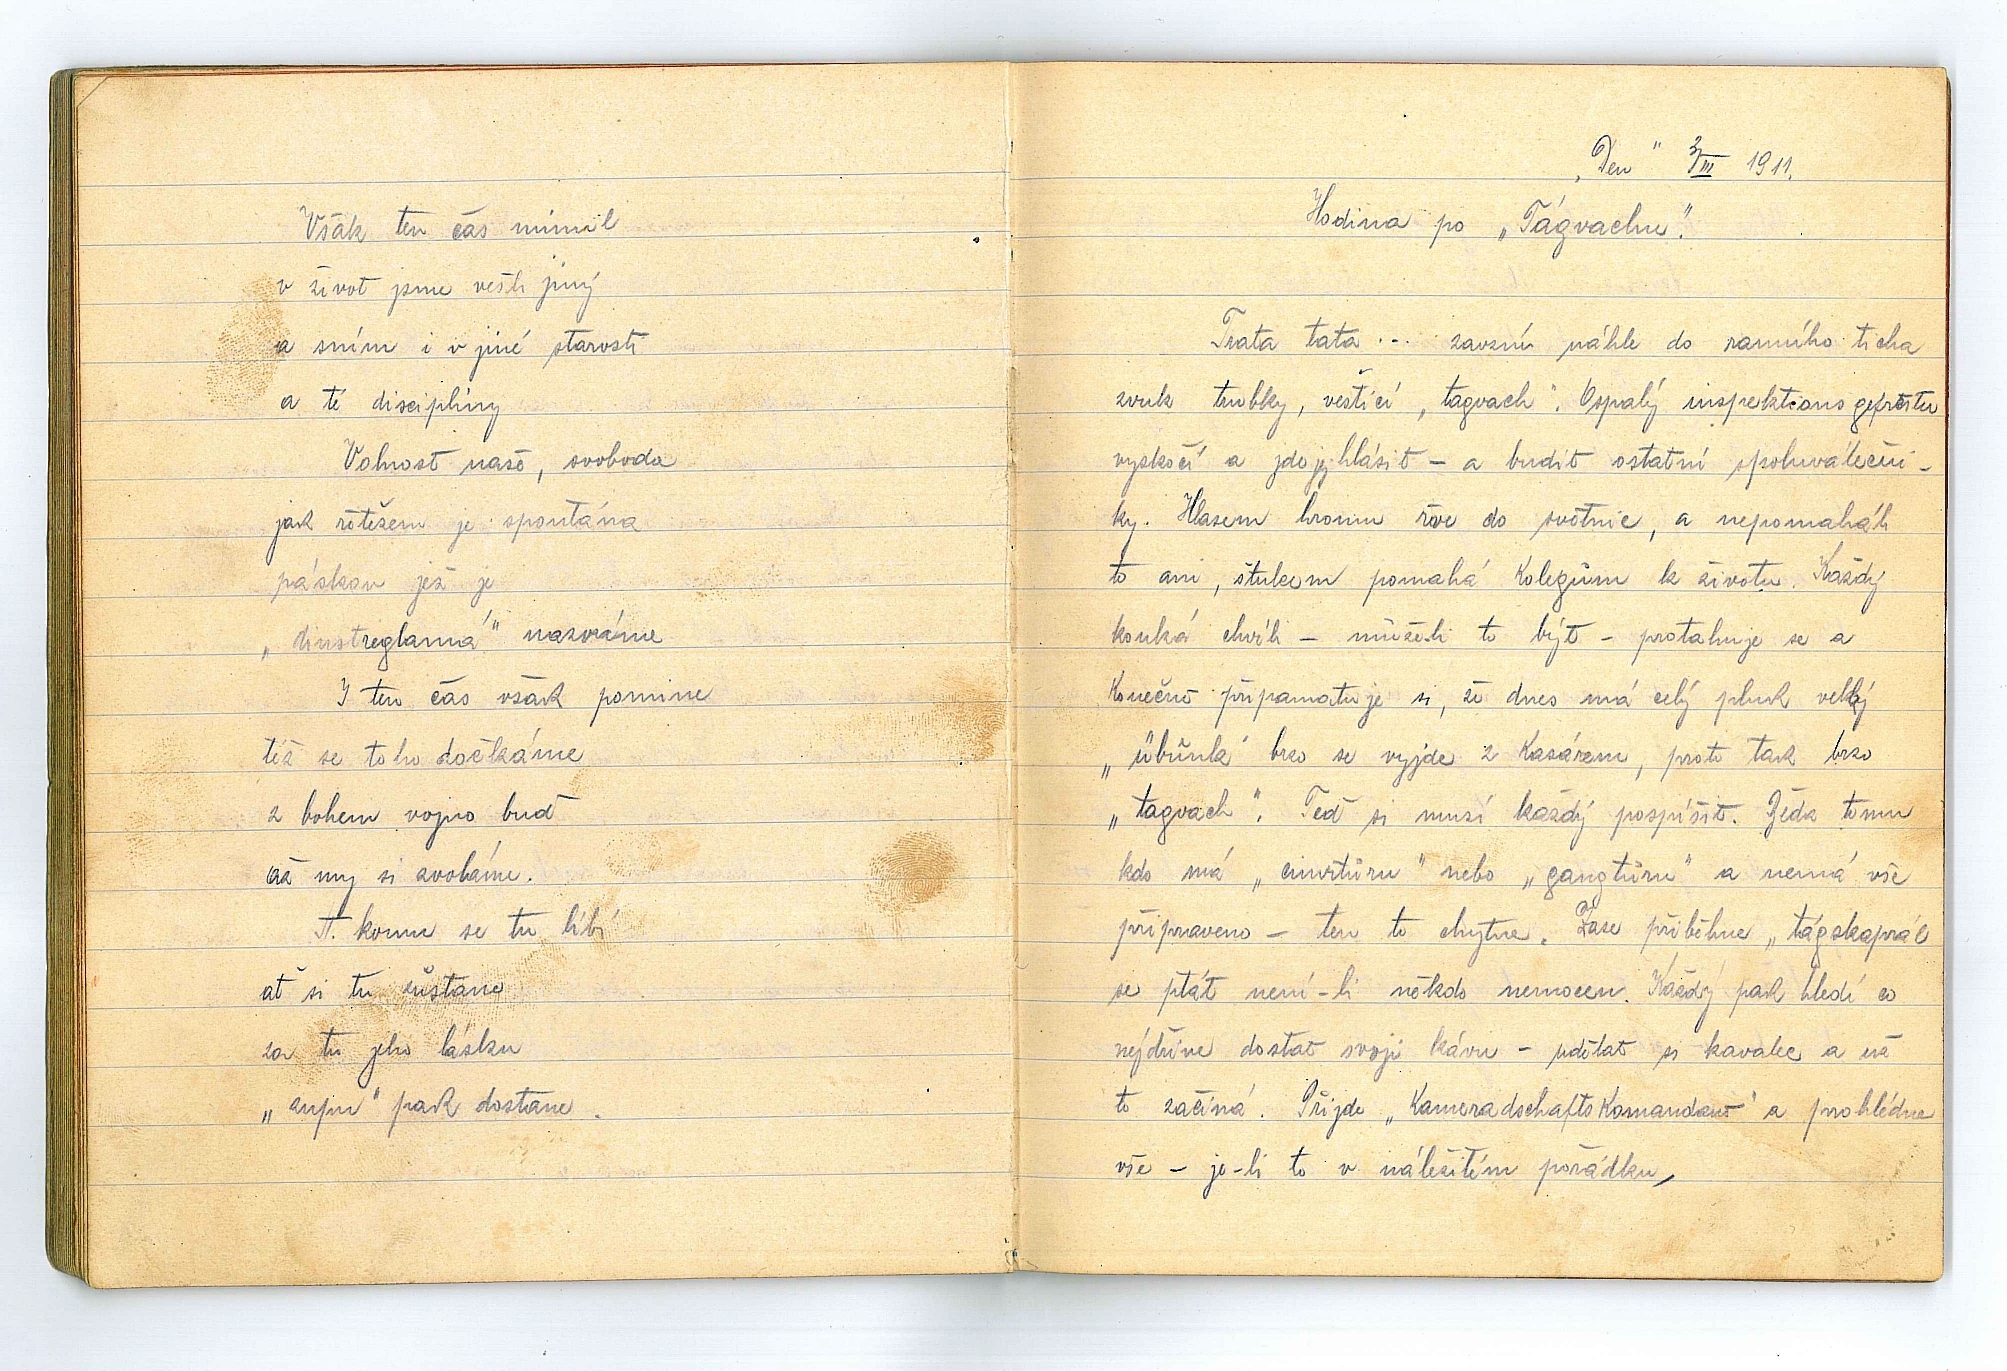 Však ten čas minul
v život jsme vešli jiný
a sním i v jiné starosti
a té disciplíny
Volnost naše, svoboda
jak řetězem je spoutána
páskou jež je
„dinstreglamá" nazváme
I ten čas však pomine
též se toho dočkáme
z bohem vojno buď
až my si zvoláme.
A komu se tu líbí
ať si tu zůstane
za tu jeho lásku
„zupu" pak dostane.
„Den" 3/III 1911.
Hodina po „Tágvachu".
Trata tata ... zavzní náhle do ranního ticha
zvuk trubky, veštící „tagvach". Ospalý inspektions gefrétu
vyskočí a jde jej hlásit – a budit ostatní spoluváleční-
ky. Hlasem hromu řve do světnic, a nepomaháli
to ani, štulcem pomahá kolegům k životu. Každý
kouká chvíli – může-li to být – protahuje se a
konečně připamatuje si, že dnes má celý pluk velký
„übůnk" brzo se vyjde z kasáren, proto tak brzo
„tagvach". Teď si musí každý pospíšit. Běda tomu
kdo má „cimrtůru" nebo „gangtůru" a nemá vše
připraveno – ten to chytne. Zase přiběhne „tágskaprál
se ptát není-li někdo nemocen. Každý pak hledí co
nejdříve dostat svoji kávu – udělat si kavalec a už
to začíná. Přijde „Kameradschafts Komandant" a prohlédne
vše – je-li to v náležitém pořádku,